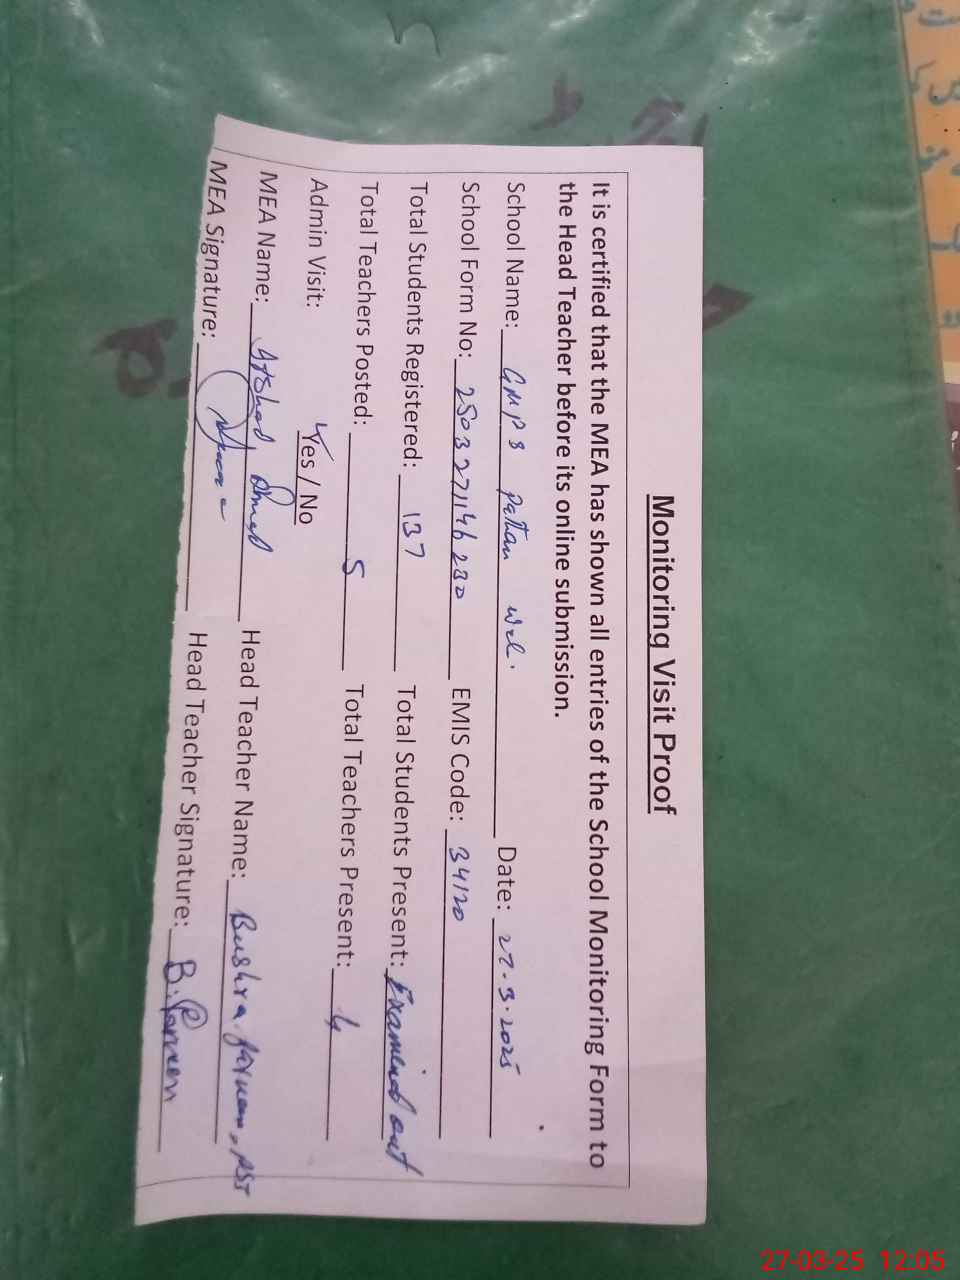 Monitoring Visit Proof
It is certified that the MEA has shown all entries of the School Monitoring Form to
the Head Teacher before its online submission.
School Name: GMPS Pathan Wel. Date: 27.3.2025
School Form No: 250327146230 EMIS Code: 34120
Total Students Registered: 137 Total Students Present: Examind out
Total Teachers Posted: 5 Total Teachers Present: 4
Admin Visit: Yes / No
MEA Name: Ahmed Head Teacher Name: Bushra
MEA Signature: Head Teacher Signature: B. Parveen
27-03-25 12:05